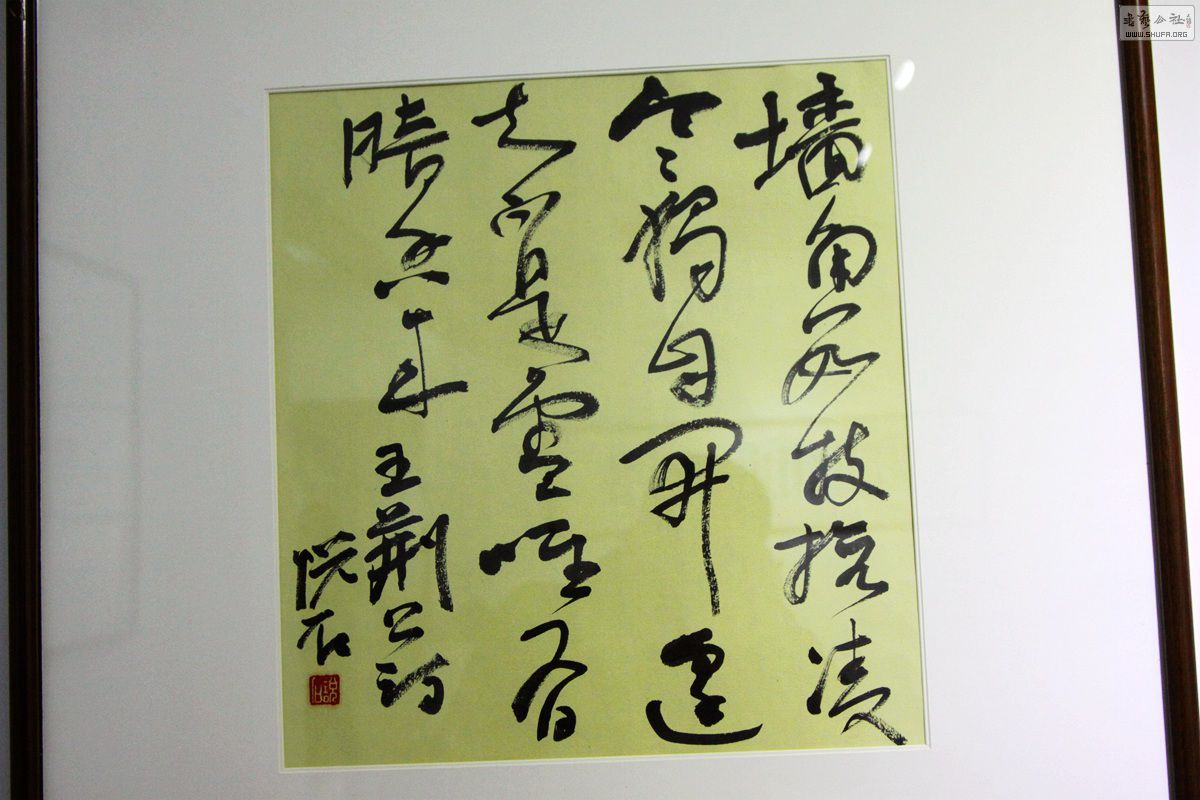 墙角数枝梅凌
寒獨自開遥
知不是雪唯有
暗香来王荆公诗
悦石
书艺公社
WWW.SHUFA.ORG